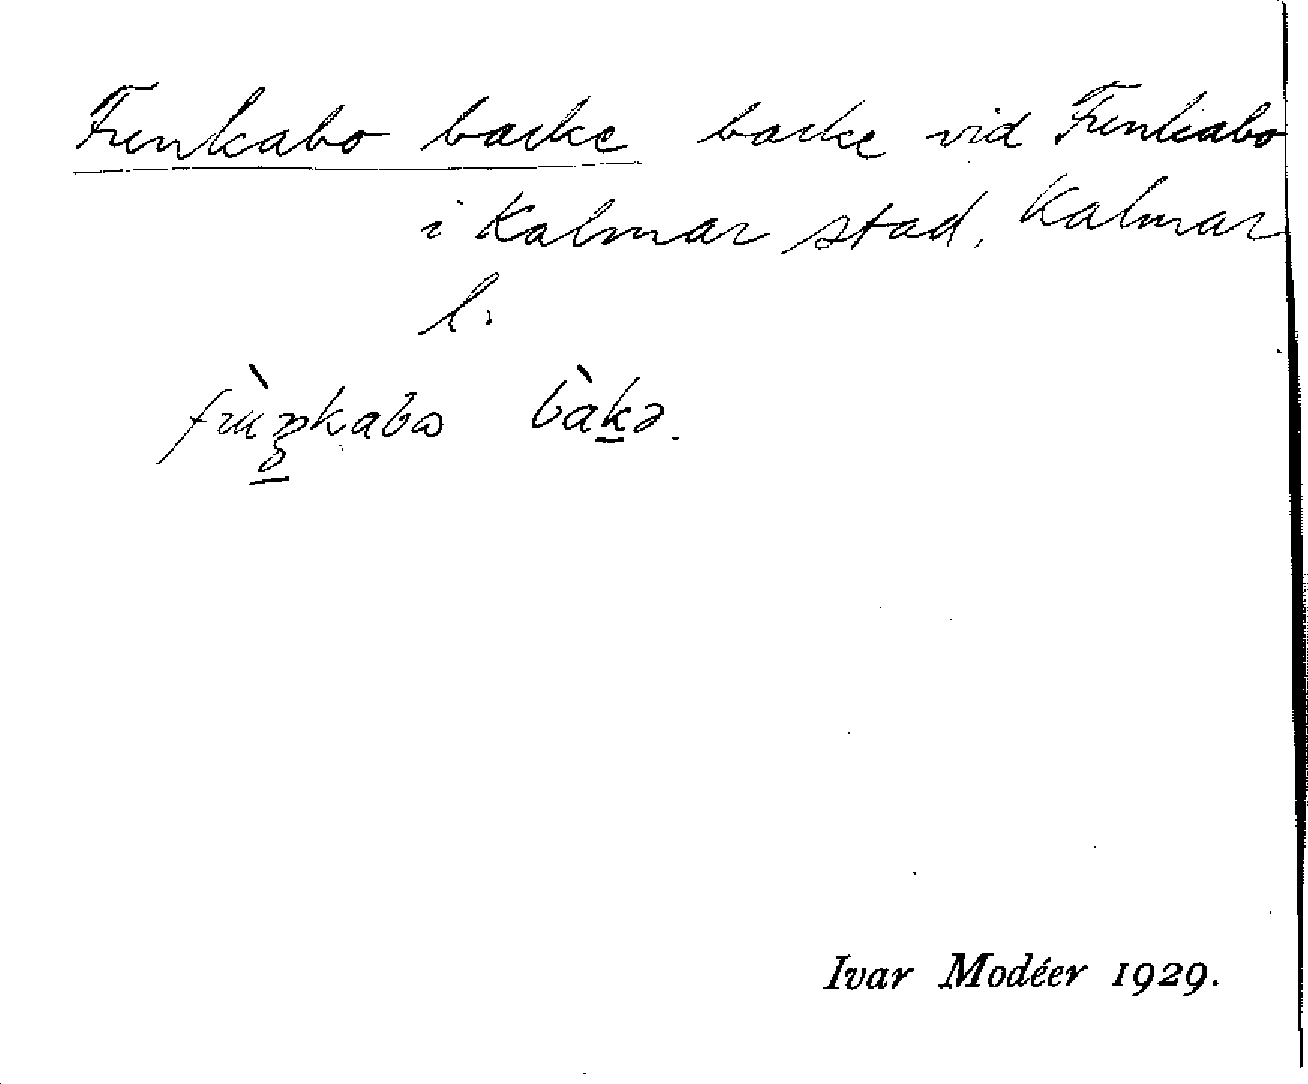 Funkabo backe backe vid Funkabo
i Kalmar stad, Kalmar
l.
fùŋkabo bàkə.
Ivar Modéer 1929.